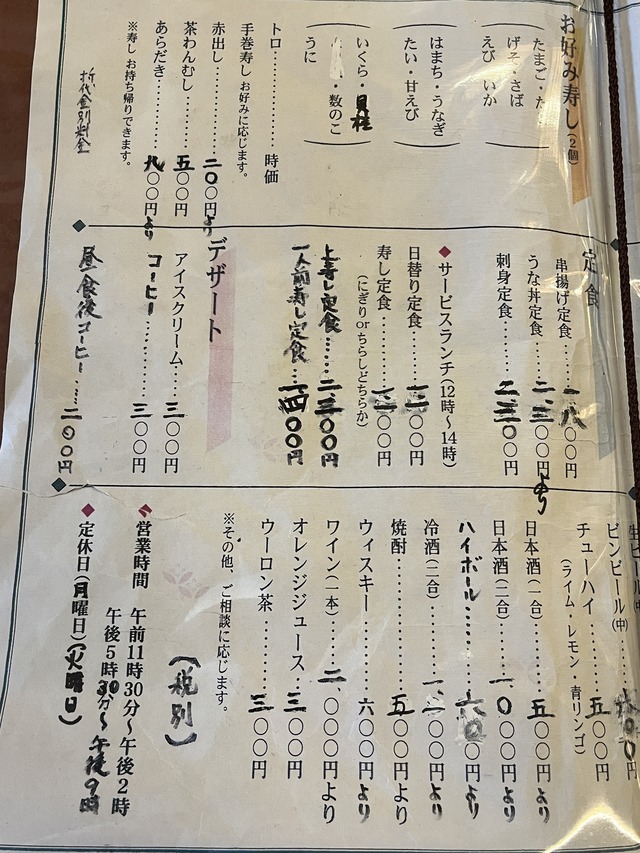 お好み寿し(2個)
たまご・た
げそ・さば
えび・いか
はまち・うなぎ
たい・甘えび
いくら・貝柱
・数のこ
うに
トロ…………時価
手巻寿し お好みに応じます。
赤出し………二〇〇円より
茶わんむし………五〇〇円
あらだき………九〇〇円より
※寿し お持ち帰りできます。
折代金別料金
定食
串揚げ定食………一、八〇〇円
うな丼定食………二、三〇〇円より
刺身定食………二、三〇〇円
◆サービスランチ(12時～14時)
日替り定食………一、〇〇円
寿し定食………一、〇〇円
(にぎりorちらしどちらか)
上寿し定食……二、三〇〇円
一人前寿し定食……一、四〇〇円
デザート
アイスクリーム……三〇〇円
コーヒー………三〇〇円
昼食後コーヒー……二〇〇円
生ビール
ビンビール(中)……〇〇円
チューハイ………五〇〇円
(ライム・レモン・青リンゴ)
日本酒(一合)………五〇〇円より
日本酒(二合)………一、〇〇〇円より
ハイボール………六〇〇円より
冷酒(二合)………一、二〇〇円より
焼酎………五〇〇円より
ウィスキー………六〇〇円より
ワイン(一本)……二、〇〇〇円より
オレンジジュース……三〇〇円
ウーロン茶………三〇〇円
※その他、ご相談に応じます。
(税別)
◆営業時間 午前11時30分～午後2時
午後5時30分～午後9時
◆定休日(月曜日)(火曜日)